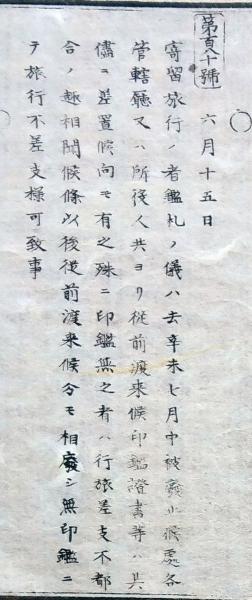 第百八十號
六月十五日
寄留旅行ノ者鑑札ノ儀ハ去辛未七月中被廢止候處各
管轄廳又ハ所役人共ヨリ従前渡来候印鑑證書等ハ其
儘ニ差置候向モ有之殊ニ印鑑無之者ハ行旅差支不都
合ノ趣相聞候條以後従前渡来候分モ相廢シ無印鑑ニ
テ旅行不差支様可致事